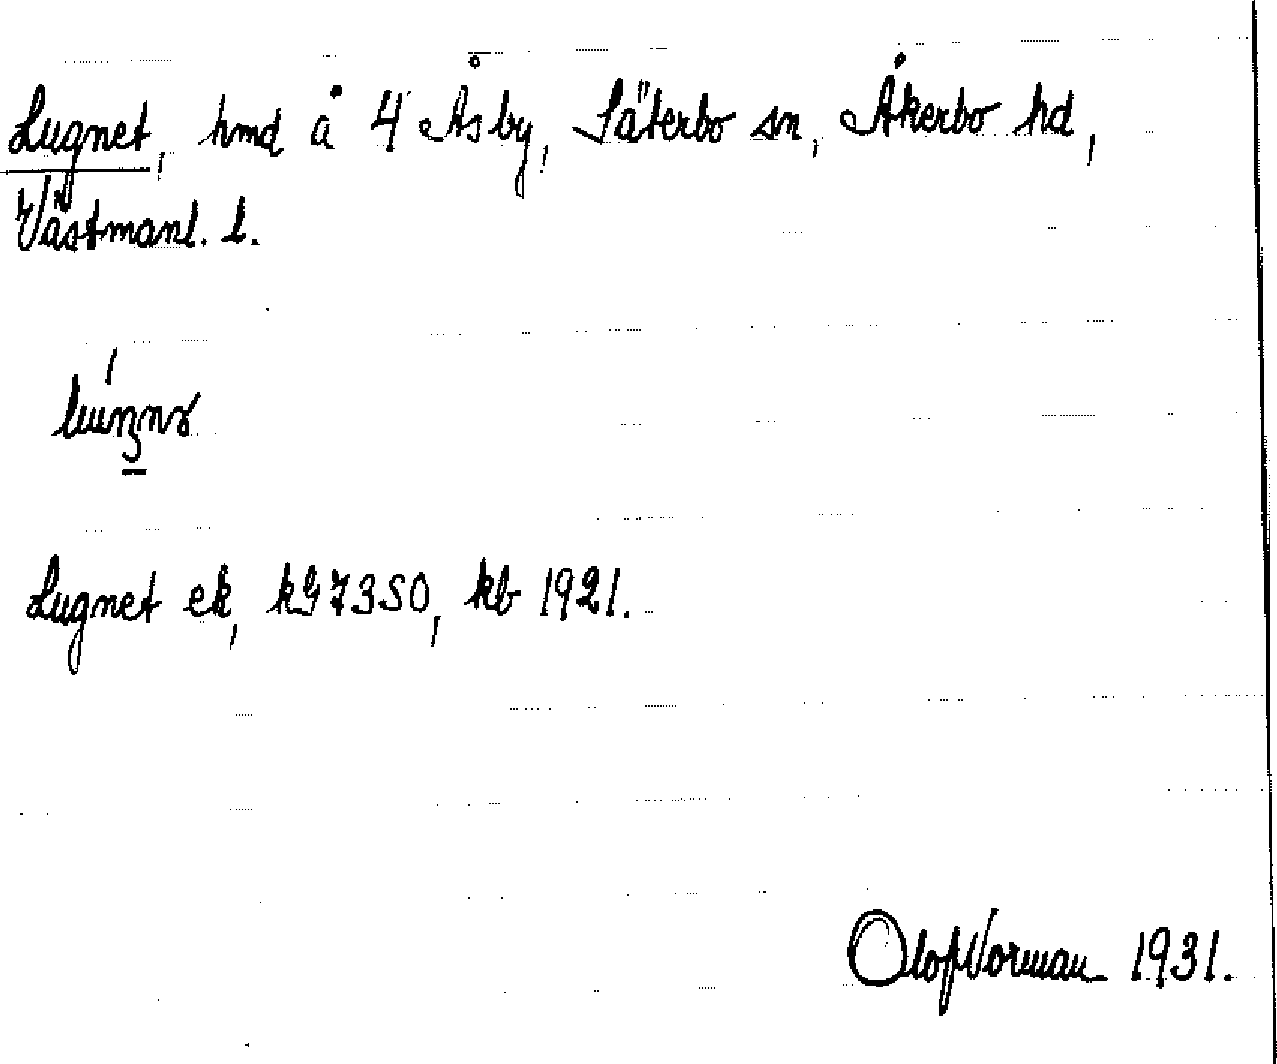 Lugnet, hmd å 4 Åsby, Säterbo sn, Åkerbo hd,
Västmanl. l.
Lugnet ek, kG7350, kb 1921.
Olof Norman 1931.